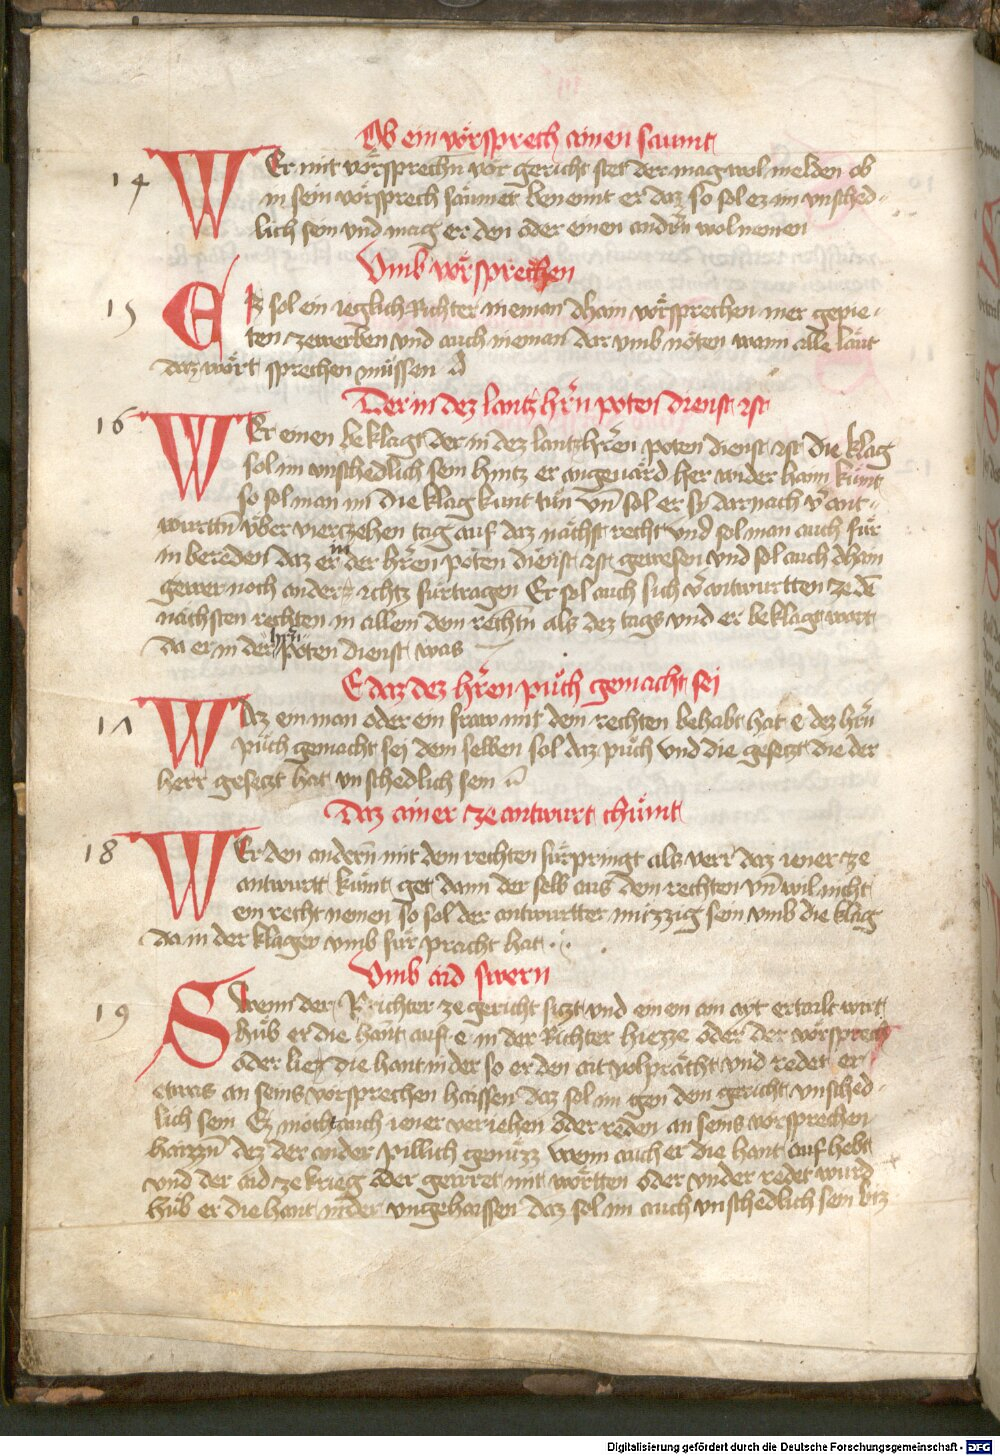 Ob ein vorsprech ainen saumt
14 WEr mit vorsprechn vor gericht stet der mag wol melden ob
in sein vorsprech saumet benennt er daz so sol ez im vnsched-
lich sein vnd mag er den oder einen andrn wol nemen
Vmb vorsprechen
15 Ez sol ein ieglich Richter nieman dhain vorsprechen mer gepie-
ten ze werben vnd auch nieman dar vmb nöten wann alle läut
daz wort sprechen müssen
Der in dez lantzhrn poten dienst ist
16 WEr einen beklagt der in dez lantzhren poten dienst ist die klag
sol im vnschedlich sein hintz er angeuärd her wider haim kümt
so sol man im die klag kunt tun vn sol er sy darnach v̄ant-
wurttn vber vierczehen tag auf daz nächst recht vnd sol man auch für
in bereden daz er in der hren poten dienst ist gewesen vnd sol auch dhain
gewer noch anders ichtz fürtragen Er sol auch sich v̄antwurtten ze dē
nächsten rechten in allem dem rechtn als dez tags vnd er beklagt wart
da er in der hrn poten dienst was
E daz dez hren puch gemacht sei
17 WAz ein man oder ein fraw mit dem rechten behabt hat e dez hrn
puch gemacht sei dem selben sol daz puch vnd die gesetzt die der
herr gesetzt hat vnschedlich sein
Daz ainer ze antwurt chümt
18 WEr den andern mit dem rechten fürpringt als verr daz iener ze
antwurtt kümt get dann der selb aus dem rechten vn wil nicht
ein recht nemen so sol der antwurtter müzzig sein vmb die klag
da in der klager vmb für pracht hat
Vmb aid swern
19 SWenn der Richter ze gericht siczt vnd einem ain ayt ertailt wirt
hub er die hant auf e in der Richter hiezze oder der vorsprech
oder liez die hant nider so er den ait volprächt vnd redet er
etwas an seins vorsprechen haissen daz sol im gen dem gericht vnsched-
lich sein Ez möcht auch iener veriehen oder reden an seins vorsprechen
haizzn dez der ander pillich genüzz wenn auch er die hant auf hebt
vnd der aid ze krieg oder geirret mit wortten oder vnder redet wurd
hub er die hant nider vngehaissen daz sol im auch vnschedlich sein biz
Digitalisierung gefördert durch die Deutsche Forschungsgemeinschaft - DFG